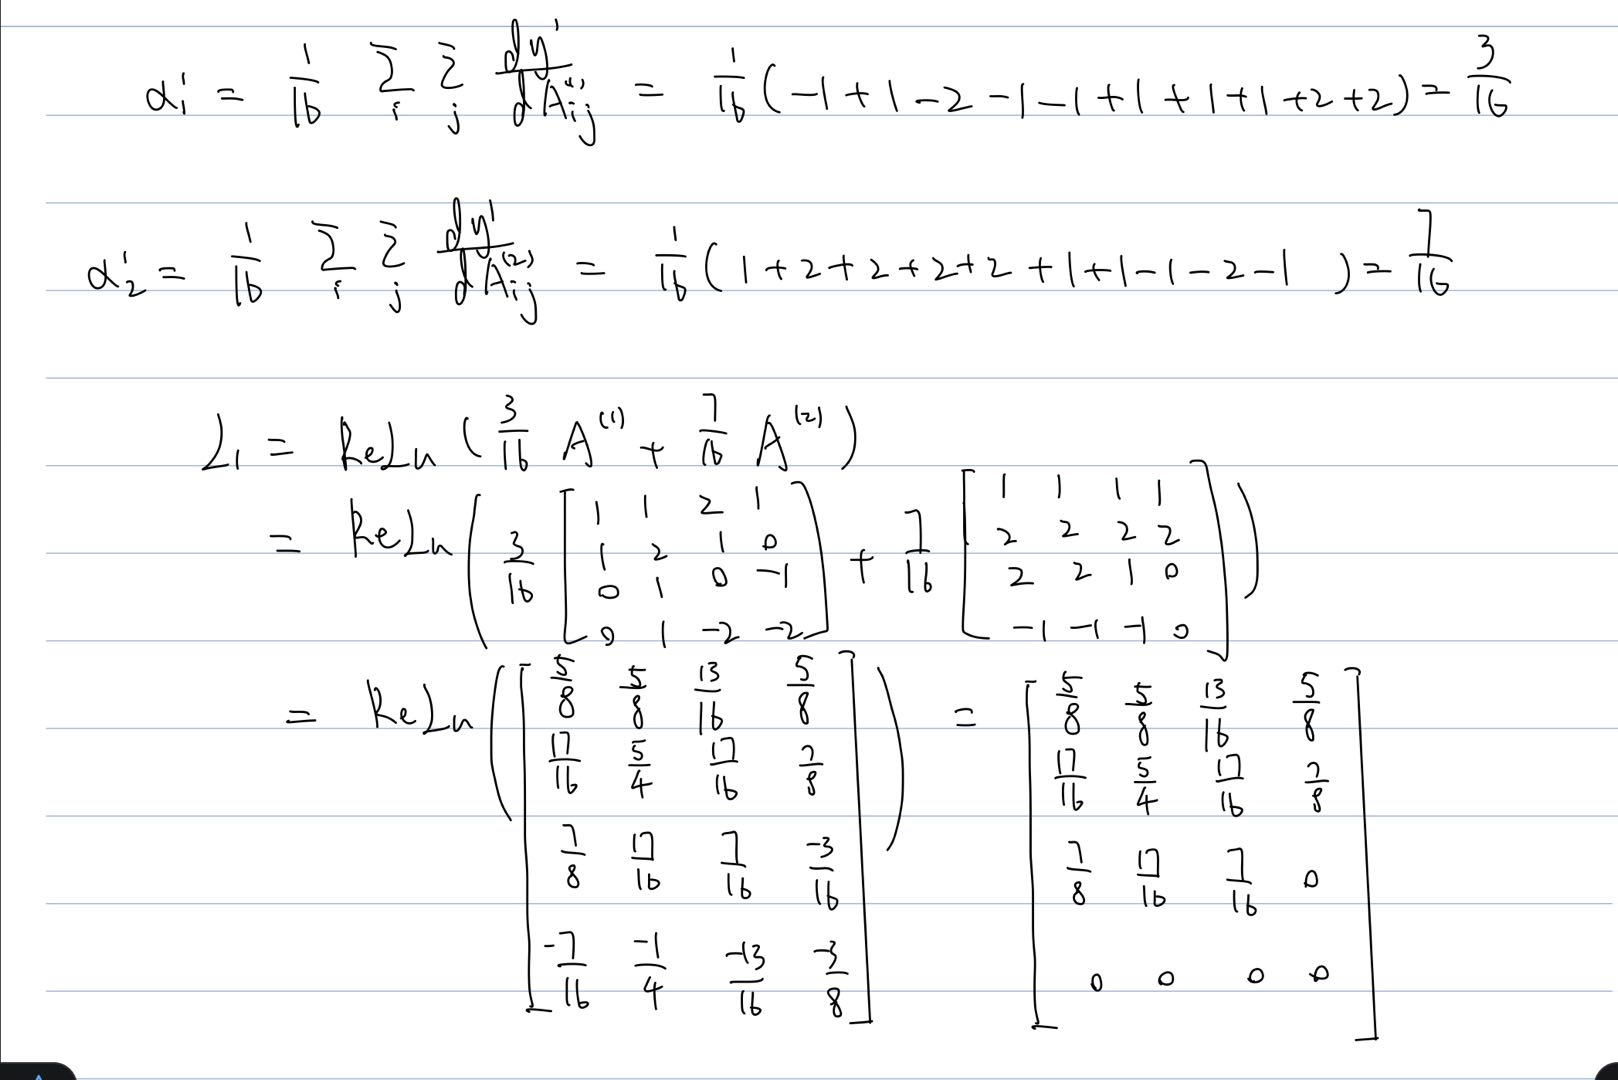 α₁' = 1/16 Σ_i Σ_j dy'/dA_ij^(1) = 1/16 (-1+1-2-1-1+1+1+1+2+2) = 3/16
α₂' = 1/16 Σ_i Σ_j dy'/dA_ij^(2) = 1/16 (1+2+2+2+2+1+1-1-2-1) = 7/16
L₁ = ReLu (3/16 A^(1) + 7/16 A^(2))
= ReLu (3/16 [1 1 2 1; 1 2 1 0; 0 1 0 -1; 0 1 -2 -2] + 7/16 [1 1 1 1; 2 2 2 2; 2 2 1 0; -1 -1 -1 0])
= ReLu ([5/8 5/8 13/16 5/8; 17/16 5/4 17/16 7/8; 7/8 17/16 7/16 -3/16; -7/16 -1/4 -13/16 -3/8]) = [5/8 5/8 13/16 5/8; 17/16 5/4 17/16 7/8; 7/8 17/16 7/16 0; 0 0 0 0]